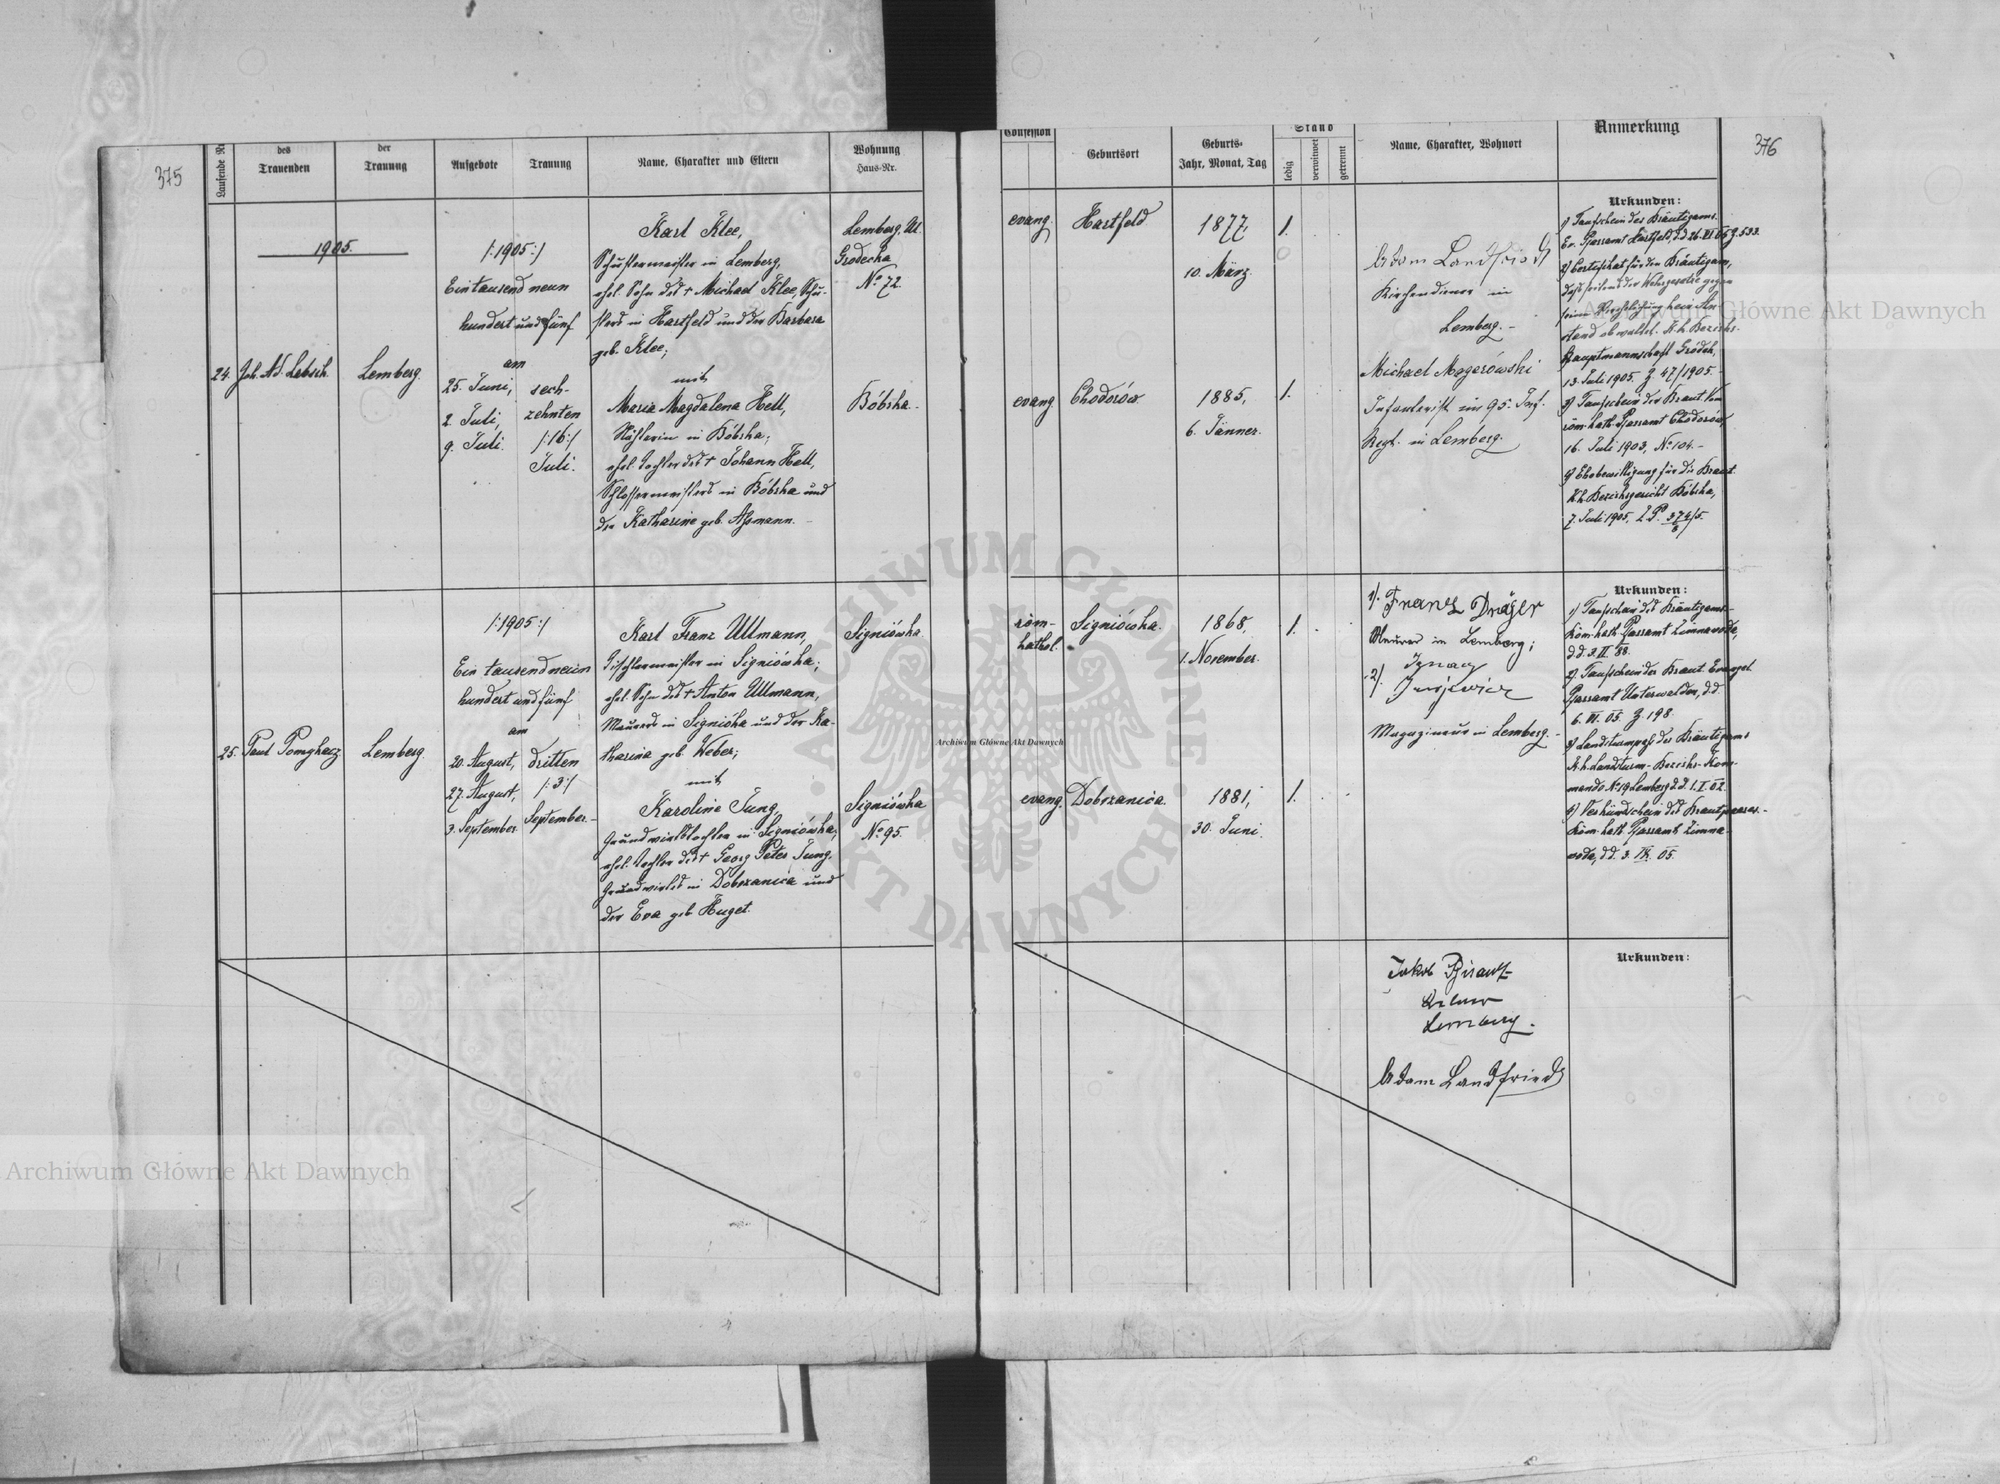 375
Laufende
des
Trauenden
der
Trauung
Aufgebote
Trauung
Name, Charakter und Eltern
Wohnung
Haus-Nr.
1905.
24.
Joh. Ad. Lebsch.
Lemberg.
/:1905:/
Eintausend neun
hundert und fünf
am
25. Juni,
2. Juli,
9. Juli.
sech-
zehnten
/:16:/
Juli.
Karl Klee,
Schustermeister in Lemberg,
ehel. Sohn des † Michael Klee, Schu-
sters in Hartfeld und der Barbara
geb. Klee;
mit
Maria Magdalena Hell,
Nähterin in Bóbrka;
ehel. Tochter des † Johann Hell,
Schlossermeisters in Bóbrka und
der Katharine geb. Aßmann.
Lemberg, Ul.
Grodecka
No 72.
Bóbrka.
25.
Paul Pomykacz
Lemberg.
/:1905:/
Ein tausend neun
hundert und fünf
am
20. August,
27. August,
3. September.
dritten
/:3:/
September.
Karl Franz Ullmann,
Tischlermeister in Signiówka;
ehel. Sohn des † Anton Ullmann,
Maurers in Signiówka und der Ka-
tharina geb. Weber;
mit
Karoline Jung,
Grundwirtstochter in Signiówka;
ehel. Tochter des † Georg Peter Jung,
Grundwirtes in Dobrzanica und
der Eva geb. Huget.
Signiówka.
Signiówka
No 95.
376
Confession
Geburtsort
Geburts-
Jahr, Monat, Tag
Stand
ledig
verwitwet
getrennt
Name, Charakter, Wohnort
Anmerkung
evang.
Hartfeld
1877,
10. März.
1.
evang.
Chodorów
1885,
6. Jänner.
1.
Adam Landfried
Kirchendiener in
Lemberg.
Michael Magerówski
Infanterist im 95. Inf.
Regt. in Lemberg.
Urkunden:
1) Taufschein des Bräutigams.
Ev. Pfarramt Hartfeld, d.d. 26. VI. 05 Z. 533.
2) Certifikat für den Bräutigam,
daß seitens der Wehrgesetze gegen
seine Verehelichung kein An-
stand obwaltet. K.k. Bezirks-
hauptmannschaft Gródek,
13. Juli 1905. Z. 47/1905.
3) Taufschein der Braut vom
röm. kath. Pfarramt Chodorów,
16. Juli 1903, No 104.
4) Ehebewilligung für die Braut
K.k. Bezirksgericht Bóbrka,
7. Juli 1905,
röm-
kathol.
Signiówka.
1868,
1. November.
1.
evang.
Dobrzanica.
1881,
30. Juni.
1.
1/. Franz Dräger
Maurer in Lemberg;
2/. Ignacy
Magazineur in Lemberg.
Urkunden:
1) Taufschein des Bräutigams.
Röm. kath. Pfarramt Zimnawoda,
d.d. 3. II. 88.
2) Taufschein der Braut. Evangel.
Pfarramt Unterwalden, d.d.
6. VI. 05. Z. 198.
3) Landsturmpaß des Bräutigams
K.k. Landsturm-Bezirks-Kom-
mando No 19 Lemberg d.d. 1. I. 02.
4) Verkündschein des Brautpaares.
Röm. kath. Pfarramt Zimna-
woda, d.d. 3. IX. 05.
Jakob
Lemberg.
Adam Landfried
Urkunden:
Archiwum Główne Akt Dawnych
Archiwum Główne Akt Dawnych
Archiwum Główne Akt Dawnych
ARCHIWUM GŁÓWNE AKT DAWNYCH